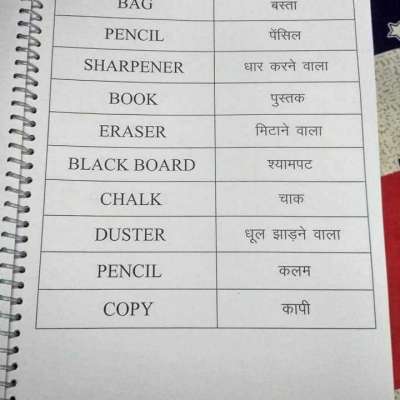 BAG बस्ता
PENCIL पेंसिल
SHARPENER धार करने वाला
BOOK पुस्तक
ERASER मिटाने वाला
BLACK BOARD श्यामपट
CHALK चाक
DUSTER धूल झाड़ने वाला
PENCIL कलम
COPY कापी